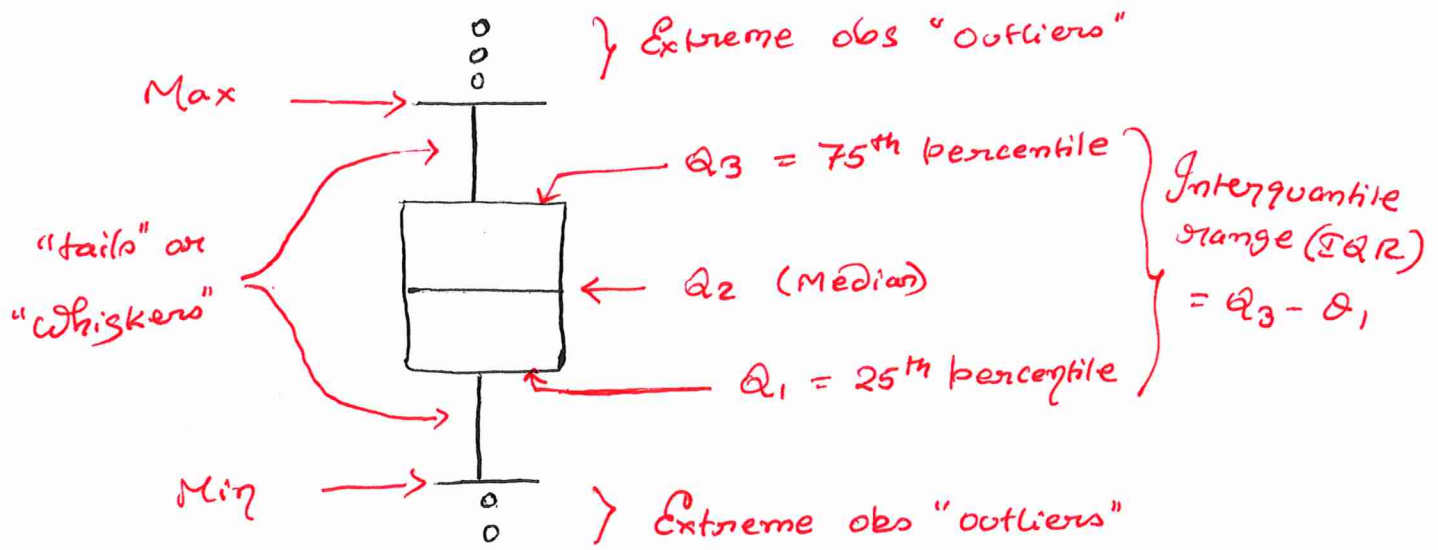 } Extreme obs "outliers"
Max
Q3 = 75th percentile
Interquantile
range (IQR)
= Q3 - Q1
"tails" or
"Whiskers"
Q2 (Median)
Q1 = 25th percentile
Min
} Extreme obs "outliers"